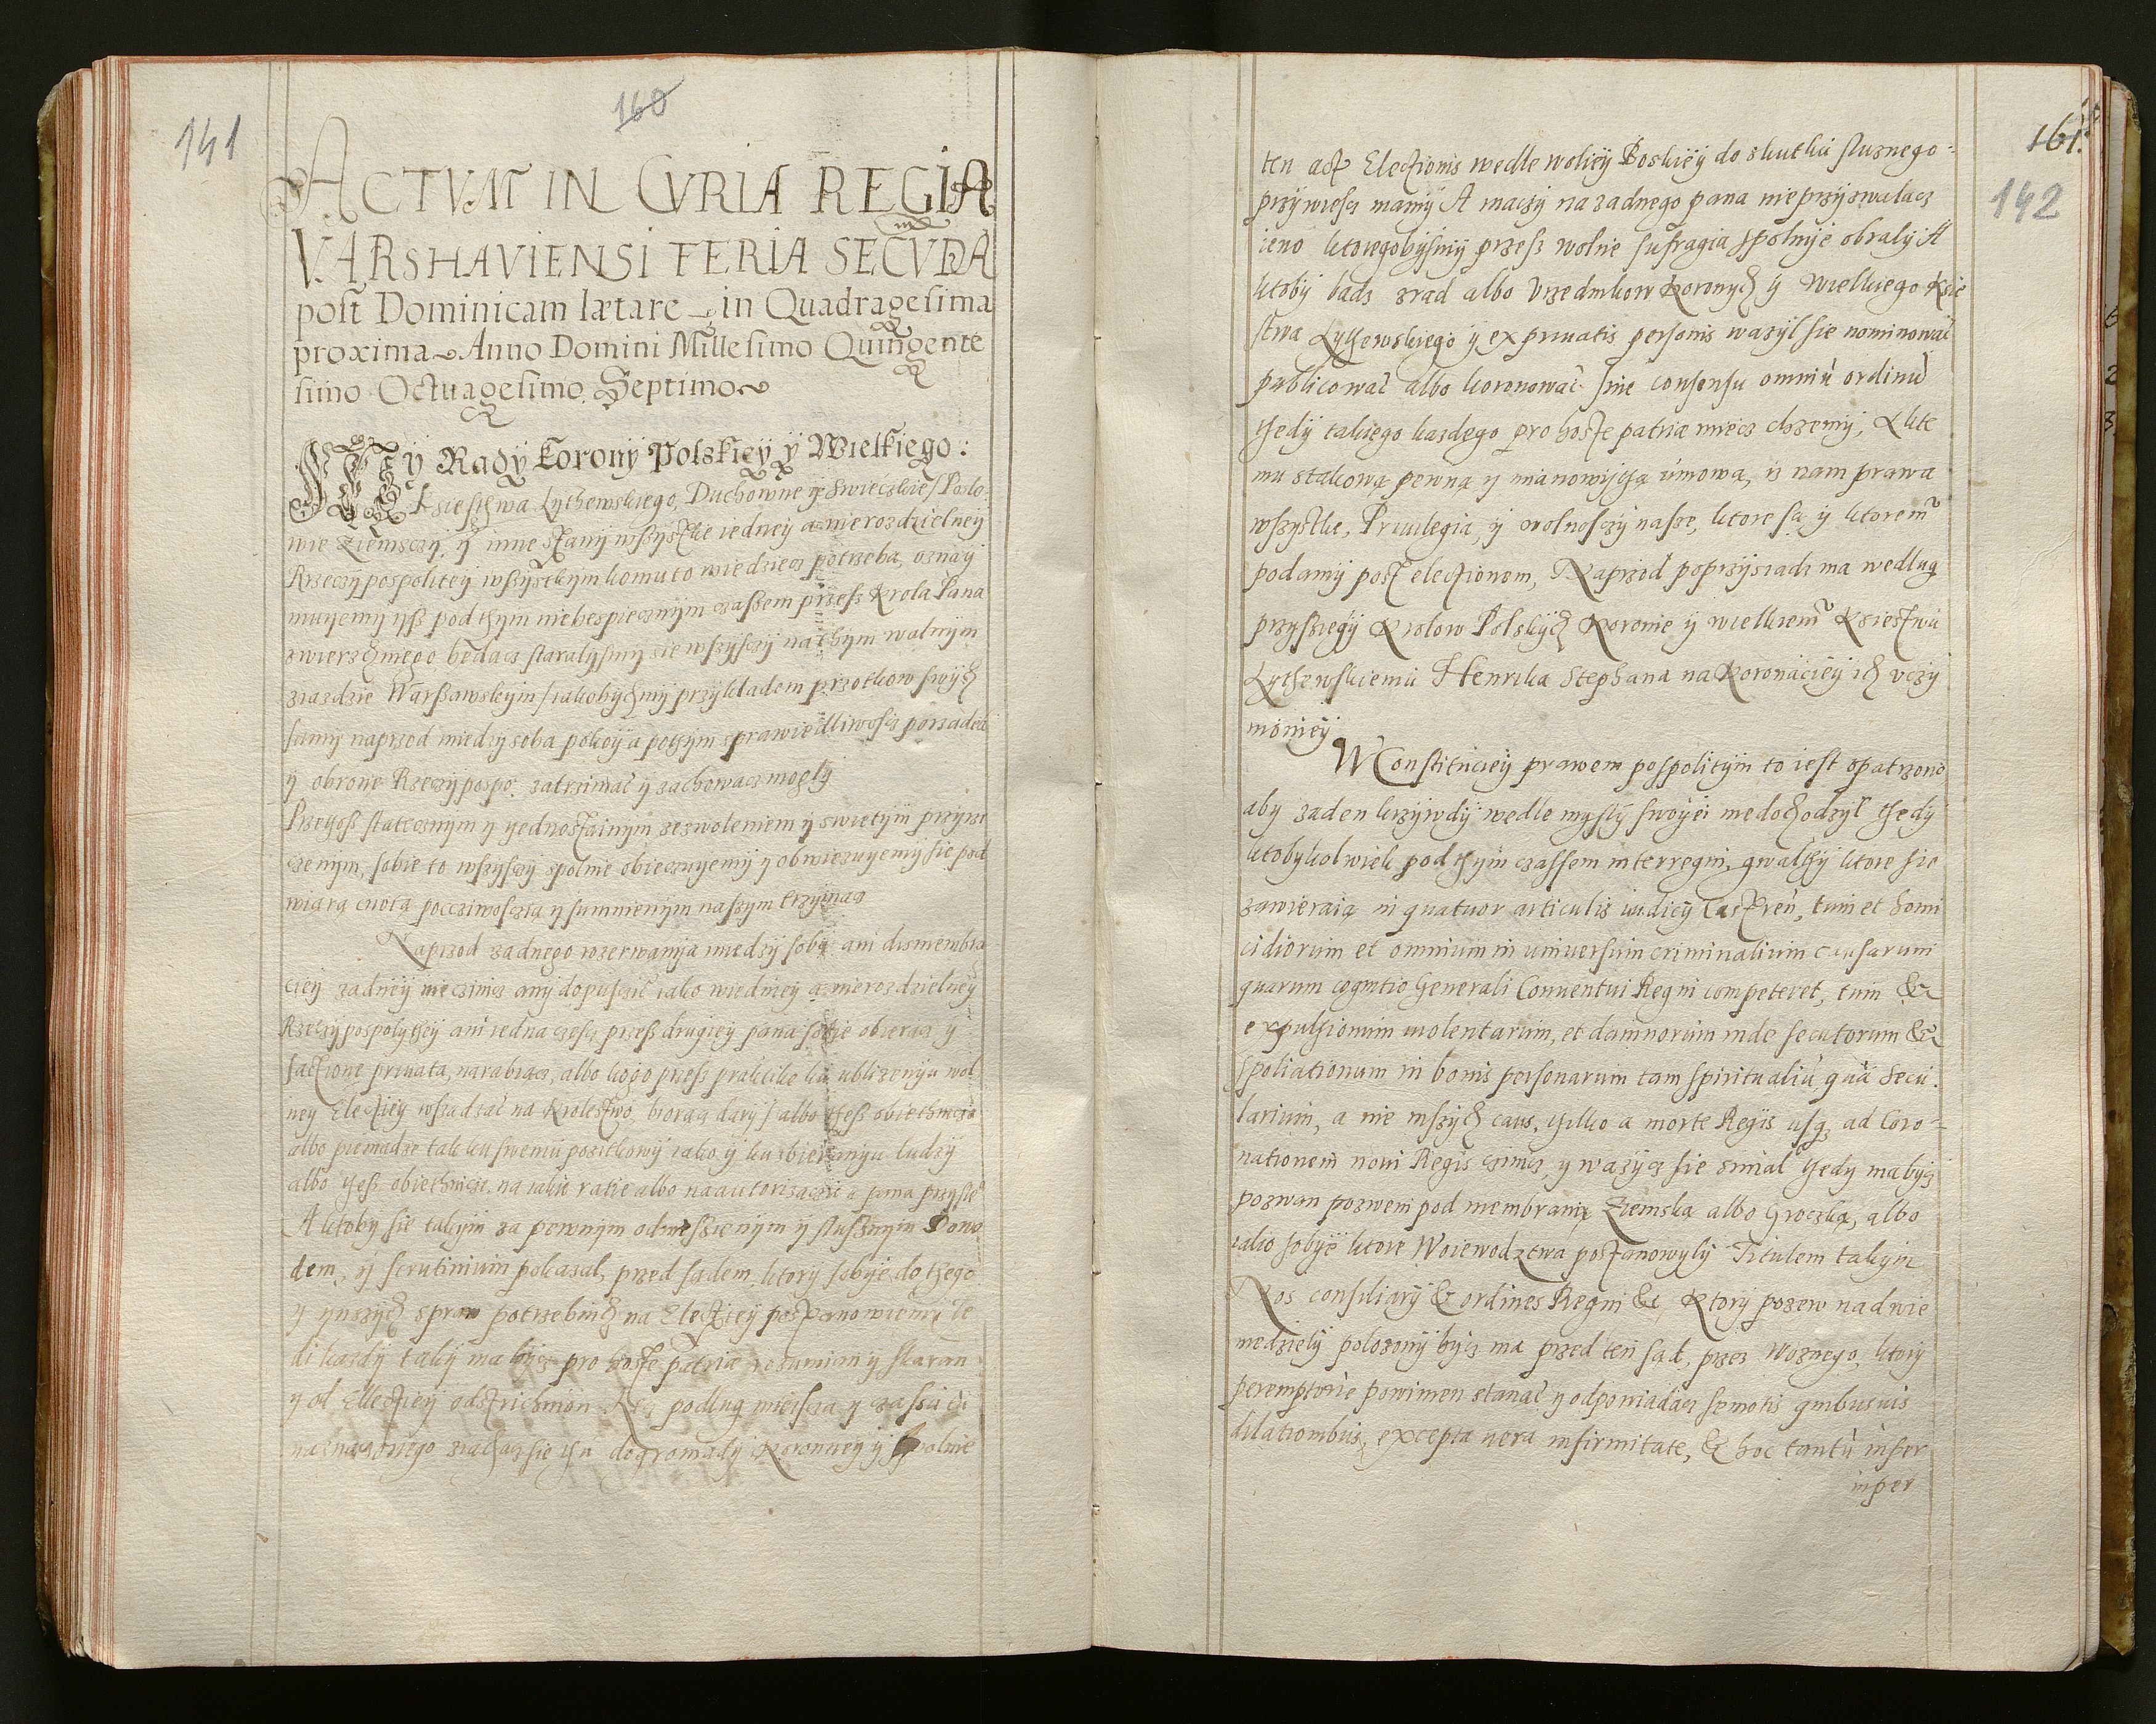 141
160
ACTVM IN CVRIA REGIA
VARSHAVIENSI FERIA SECVDA
post Dominicam lætare in Quadragesima
proxima Anno Domini Millesimo Quingente
simo Octuagesimo Septimo
MY Rady Korony Polskiey y Wielkiego:
Xiesthwa Lythewskiego, Duchowne y Swieczkie / Poslo
wie Ziemsczy, y inne stany wszystkie iedney a nierozdzielney
Rzeczypospolitey wszystkym komu to wiedziecz potrzeba, oznay
muyemy ysz pod thym niebespiecznym czassem przess Krola Pana
zwierzchniego bedacz staralysmy sie wszysczy na thym walnym
ziazdzie Warszawskym / iakobychmy przykladem przotkow swych
samy naprzod miedzy soba pokoy a pothym sprawiedliwoscz porzadek
y obrone Rzeczypospo: zatrzimac y zachowacz mogly
Przetosz statecznym y yednostainym zezwoleniem y swietym przymi
rzenym, sobie to wszysczy spolnie obieczuyemy y obwiezuyemy sie pod
wiarą cnotą poccziwosczią y sumnienym naszym trzymacz
Naprzod zadnego rozerwanya miedzy sobą ani dismembra
ciey zadney nie czinicz any dopuscic iako wiedney a nierozdzielney
Rzeczypospolythey ani iedna czescz przesz drugiey pana sobie obieracz y
factione priuata, narabiacz, albo kogo przesz praktike ku ublizenyu wol
ney Electiey wsadzac na Krolestwo, biorąc dary / albo thesz obiethnicze
albo pieniadze tak ku swemu pozitkowy iako y ku zbieranyu ludzy
albo thesz obiethnicze, na iakie ratie albo na autorizaczie a pana przysle
A ktoby sie takym za pewnym odniesszienym y slusznym Dowo
dem, y scrutinium pokazal, przed sądem ktory sobye do thego
y ynszych spraw potrzebnich na Electiey postanowiemy te
di kazdy taky ma bycz pro hoste patriæ rozumian y skaran
y od Ellectiey odstrichnion podlug mieisca y czassu
naznaczonego ziachacz sie tu do gromady Koronney y spolnie
161.
142
ten act Electionis wedle woliey Boskiey do skutku slusznego:
przywiescz mamy A inaczy na zadnego pana nie przyzwalacz
ieno ktoregobysmy przesz wolne sufragia spolnye obraly A
ktoby badz zrad albo Vrzednikow Koronych y Wielkiego Xsie
stwa Lythewskiego y ex priuatis personis wazyl sie nominowac
publicowac albo koronowac sine consensu omniu ordinu
thedy takiego kazdego pro hoste patriæ miecz chcemy, A kte
mu stakową pewną y mianowythą umową, iz nam prawa
wszystkie, Priuilegia, y wolnosczy nasze, ktore są y ktoremu
podamy post electionem, Naprzod poprzysiadz ma wedlug
przysziegy Krolow Polskych Koronie y wielkiemu Xiestwu
Lythewskiemu Henrika Stephana na Koronaciey ich vczy
nioniey
W Constituciey prawem pospolitym to iest opatrzono
aby zaden krzywdy wedle mysly swoyei niedochodzyl thedy
ktobykolwiek pod thym czassem interregni, gwalthy ktore sie
zawieraią in quatuor articulis iudicy Castren, tum et homi
cidiorum et omnium in universum criminalium causarum
quarum cognitio Generali Conuentui Regni competeret, tum &
expulsionum uiolentarum, et damnorum inde secutorum &
spoliationum in bonis personarum tam spiritualiu, qua Secu
larium, a nie inszych caus, tylko a morte Regis usq; ad Coro=
nationem noui Regis czinicz y wazycz sie smial thedy ma bycz
pozwan pozwem pod membraną Ziemską albo Groczką, albo
iako sobye ktore Woiewodztwa postanowyly Titulem takym
Nos consiliary & ordines Regni &c, Ktory pozew na dwie
niedziely polozony bycz ma przed ten sąd, przez Woznego, ktory
peremptorie powinien stanac y odpowiadacz semotis quibusuis
dilationibus, excepta uera infirmitate, & hoc tantu insper
insper